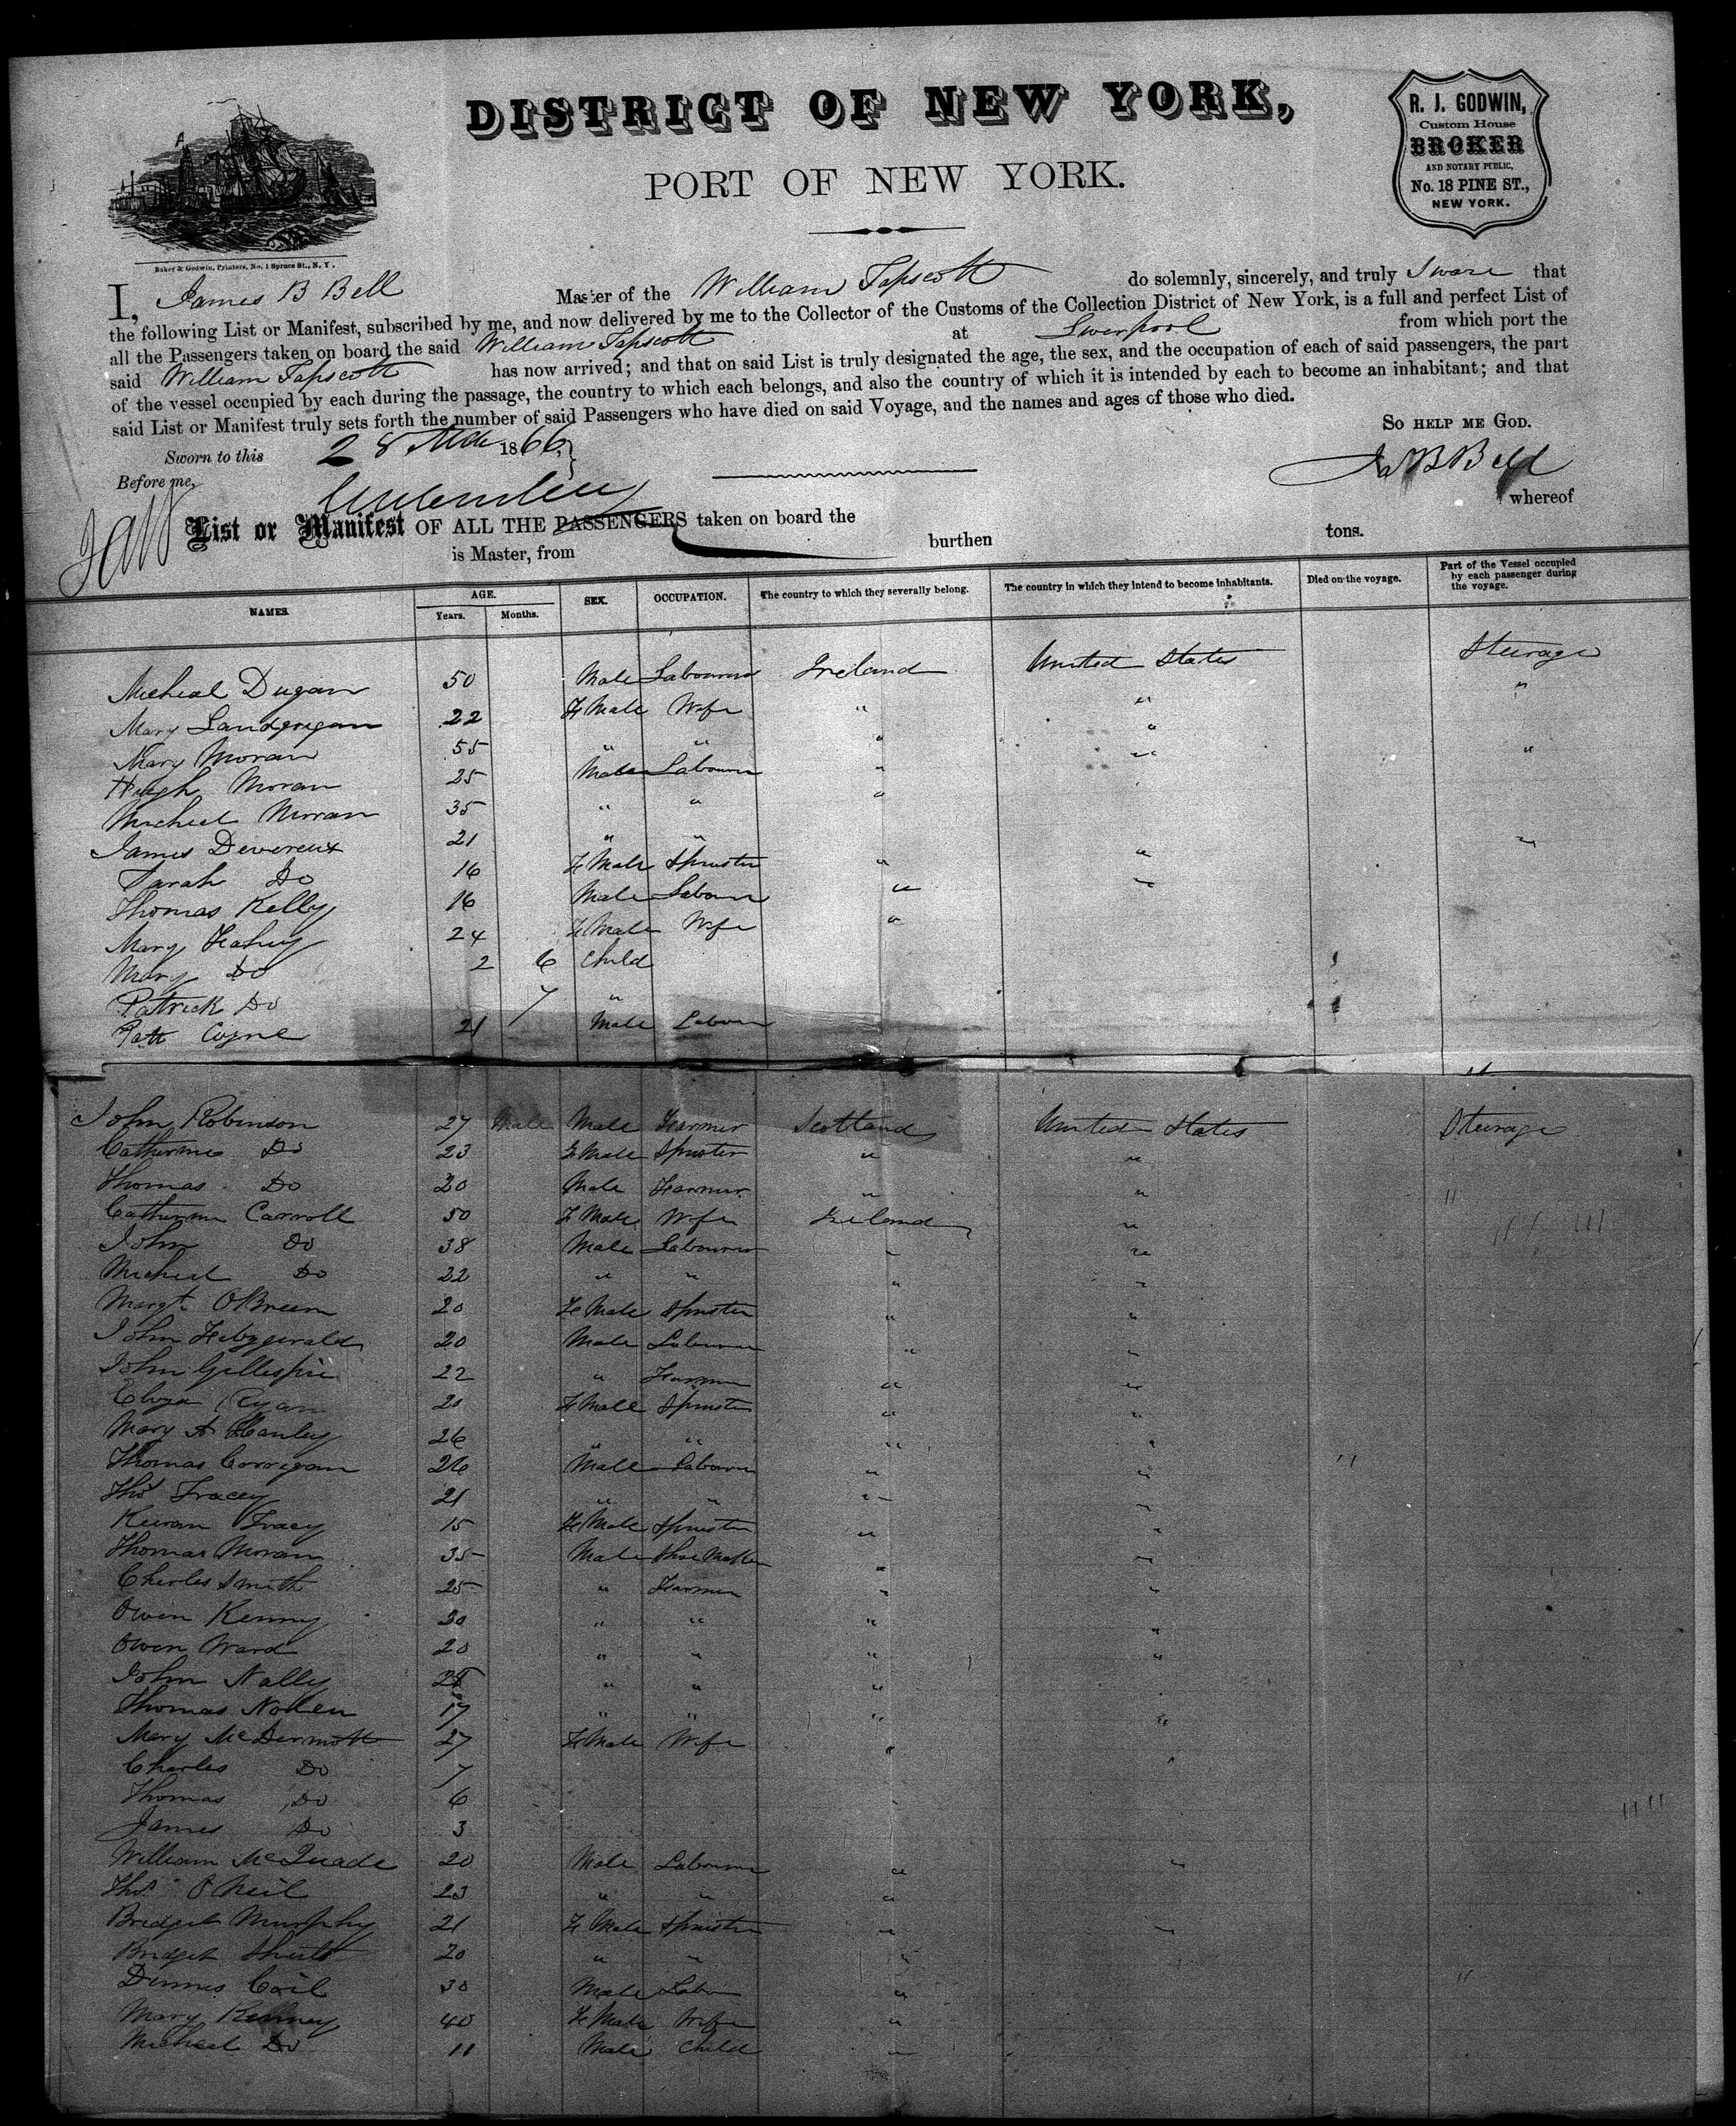 DISTRICT OF NEW YORK,
PORT OF NEW YORK.
R. J. GODWIN,
Custom House
BROKER
AND NOTARY PUBLIC,
No. 18 PINE ST.,
NEW YORK.
Baker & Godwin, Printers, No. 1 Spruce St., N. Y.
I, James B Bell Master of the William Tapscott do solemnly, sincerely, and truly Sware that
the following List or Manifest, subscribed by me, and now delivered by me to the Collector of the Customs of the Collection District of New York, is a full and perfect List of
all the Passengers taken on board the said William Tapscott at Liverpool from which port the
said William Tapscott has now arrived; and that on said List is truly designated the age, the sex, and the occupation of each of said passengers, the part
of the vessel occupied by each during the passage, the country to which each belongs, and also the country of which it is intended by each to become an inhabitant; and that
said List or Manifest truly sets forth the number of said Passengers who have died on said Voyage, and the names and ages of those who died.
SO HELP ME GOD.
Sworn to this 28 1866
Before me,
Jas B Bell
List or Manifest OF ALL THE PASSENGERS taken on board the whereof
is Master, from burthen tons.
NAMES. AGE. Years. Months. SEX. OCCUPATION. The country to which they severally belong. The country in which they intend to become inhabitants. Died on the voyage. Part of the Vessel occupied by each passenger during the voyage.
Micheal Dugan 50 Male Labourer Ireland United States Steerage
Mary Landgrigan 22 FeMale Wife " " "
Mary Moran 55 " " " "
Hugh Moran 25 Male Labourer " " "
Micheal Moran 35 " " "
James Devereux 21 " "
Sarah Do 16 FeMale Spinster " " "
Thomas Kelly 16 Male Labour " "
Mary Fahey 24 FeMale Wife "
Mary Do 2 6 Child
Patrick Do 7 "
Patt Coyne 21 Male Labour
John Robinson 27 Male Male Farmer Scotland United States Steerage
Catherine Do 23 FeMale Spinster " "
Thomas Do 20 Male Farmer " " "
Catherine Carroll 50 FeMale Wife Ireland "
John Do 38 Male Labourer " "
Micheal Do 22 " " " "
Margt OBreen 20 FeMale Spinster " "
John Fitzgerald 20 Male Labourer " "
John Gillespie 22 " Farmer " "
Eliza Ryan 20 FeMale Spinster " "
Mary A Hanley 26 " " " "
Thomas Corrigan 26 Male Labour " " "
Thos Tracey 21 " " " "
Keeran Tracy 15 FeMale Spinster " "
Thomas Moran 35 Male Shoe Maker " "
Charles Smith 25 " Farmer " "
Owen Kenny 20 " " " "
Owen Ward 20 " " " "
John Nally 25 " " "
Thomas Nolen 17 " " " "
Mary McDermott 27 FeMale Wife " "
Charles Do 7
Thomas Do 6
James Do 3
William McQuade 20 Male Labourer " "
Thos O Neil 23 " " "
Bridget Murphy 21 FeMale Spinster " "
Bridget 20 " " "
Dennis Coil 30 Male Labour " "
Mary Kearney 40 FeMale Wife "
Micheal Do 11 Male Child "